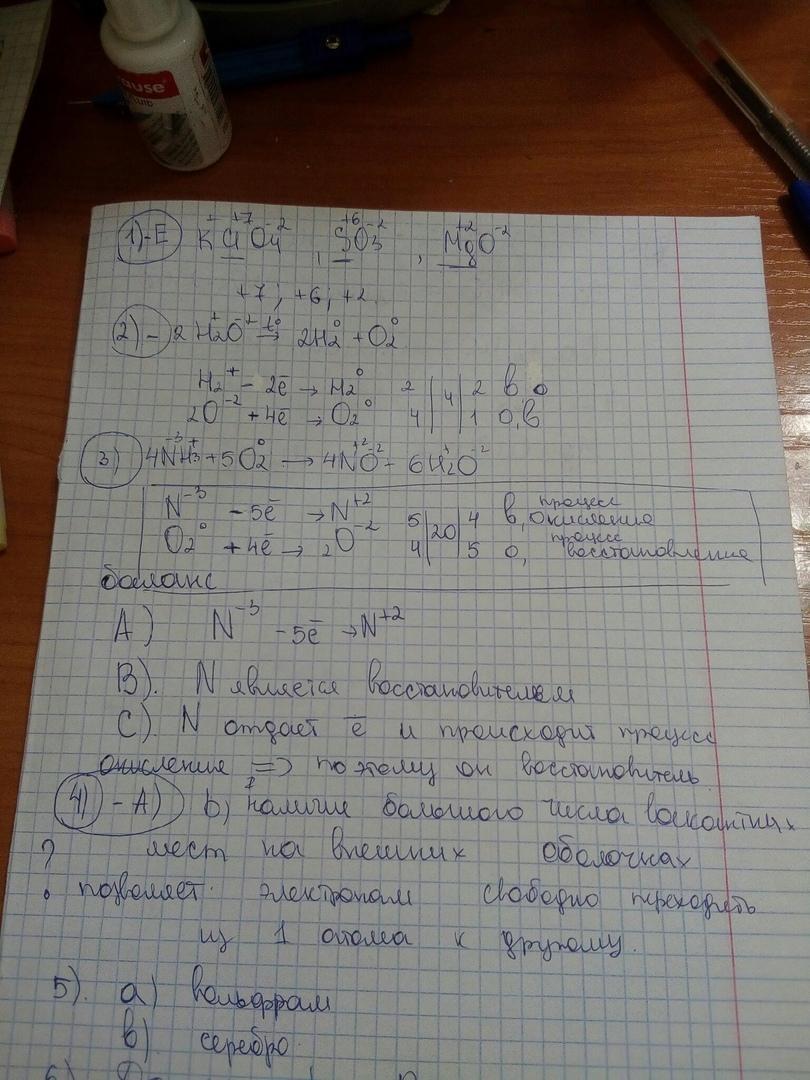 ause
1) - E K⁺Cl⁺⁷O₄⁻², S⁺⁶O₃⁻², Mg⁺²O⁻²
+7; +6; +2
2) - 2H₂⁺O⁻² t°→ 2H₂⁰ + O₂⁰
H₂⁺ - 2ē → H₂⁰ 2 | 4 | 2 в о
2O⁻² + 4ē → O₂⁰ 4 | | 1 о, в
3) 4N⁻³H₃⁺ + 5O₂⁰ → 4N⁺²O⁻² + 6H₂⁺O⁻²
N⁻³ - 5ē → N⁺² 5 | 20 | 4 в, процесс окисления
O₂⁰ + 4ē → 2O⁻² 4 | | 5 о, процесс восстановление
баланс
A) N⁻³ - 5ē → N⁺²
B). N является восстановителем
C). N отдает ē и происходит процесс
окисление => поэтому он восстановитель
4) - A) b) наличие большого числа вакантных
? мест на внешних оболочках
позволяет электронам свободно переходить
из 1 атома к другому.
5). a) вольфрам
в) серебро
6)